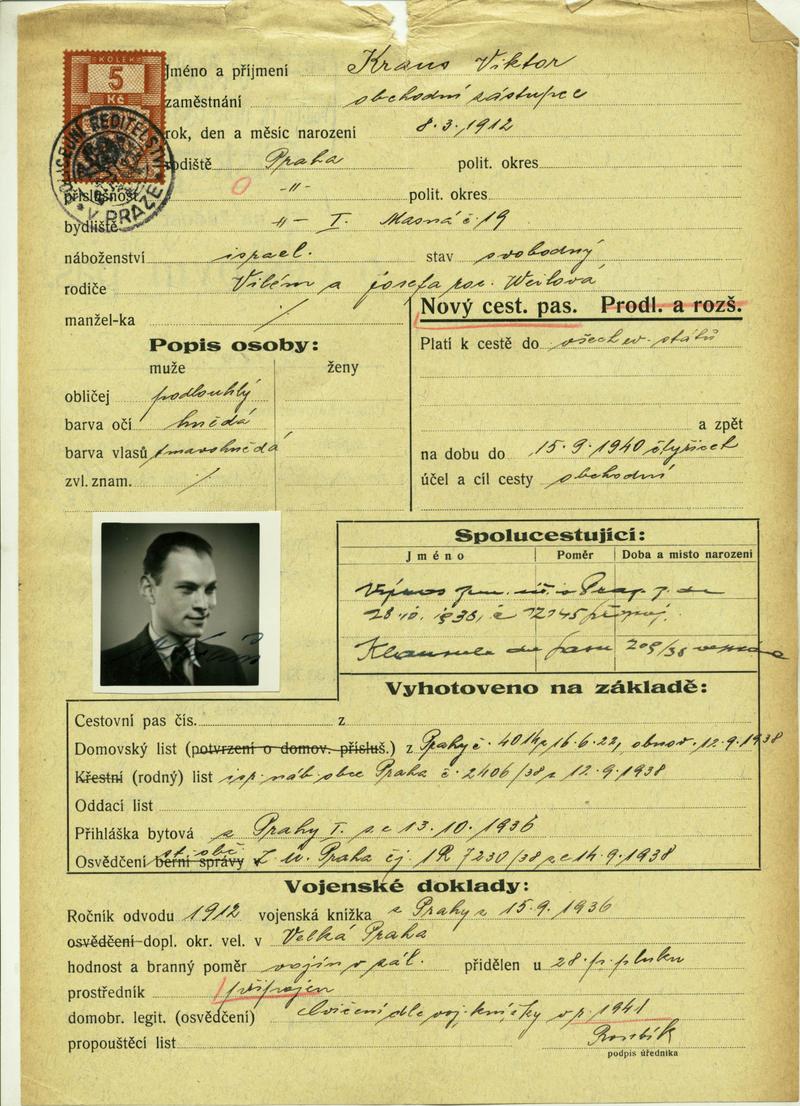 KOLEK
5
Kč
POLICEJNÍ ŘEDITELSTVÍ V PRAZE
Jméno a příjmení Kraus Viktor
zaměstnání obchodní zástupce
rok, den a měsíc narození 8.3.1912
rodiště Praha polit. okres
příslušnost -"- polit. okres
bydliště -"- I. Masná č 19
náboženství israel. stav svobodný
rodiče Vilém a Josefa roz. Weilová
manžel-ka /
Nový cest. pas. Prodl. a rozš.
Popis osoby:
muže ženy
Platí k cestě do všech ev. států
obličej podlouhlý
barva očí hnědá
a zpět
barva vlasů tmavohnědá
na dobu do 15.9.1940 čtyřicet
zvl. znam. /
účel a cíl cesty obchodní
Spolucestující:
Jméno Poměr Doba a místo narození
28.10.1938, č 12145
Klausule 209/38
Vyhotoveno na základě:
Cestovní pas čís. z
Domovský list (potvrzení o domov. přísluš.) z Prahy č. 4014 z 16.6.22, obnov. 12.9.1938
Křestní (rodný) list isr. náb. obce Praha č. 2406/38 z 12.9.1938
Oddací list
Přihláška bytová z Prahy I. ze 13.10.1936
Osvědčení berní správy v st. obč. Z. ú. Praha čj. 1R 7230/38 ze 14.9.1938
Vojenské doklady:
Ročník odvodu 1912 vojenská knížka z Prahy z 15.9.1936
osvědčení dopl. okr. vel. v Velká Praha
hodnost a branný poměr vojín v zál. přidělen u 28. p. pluku
prostředník připojen
domobr. legit. (osvědčení) Cvičení dle voj. knížky v r. 1941
propouštěcí list
podpis úředníka